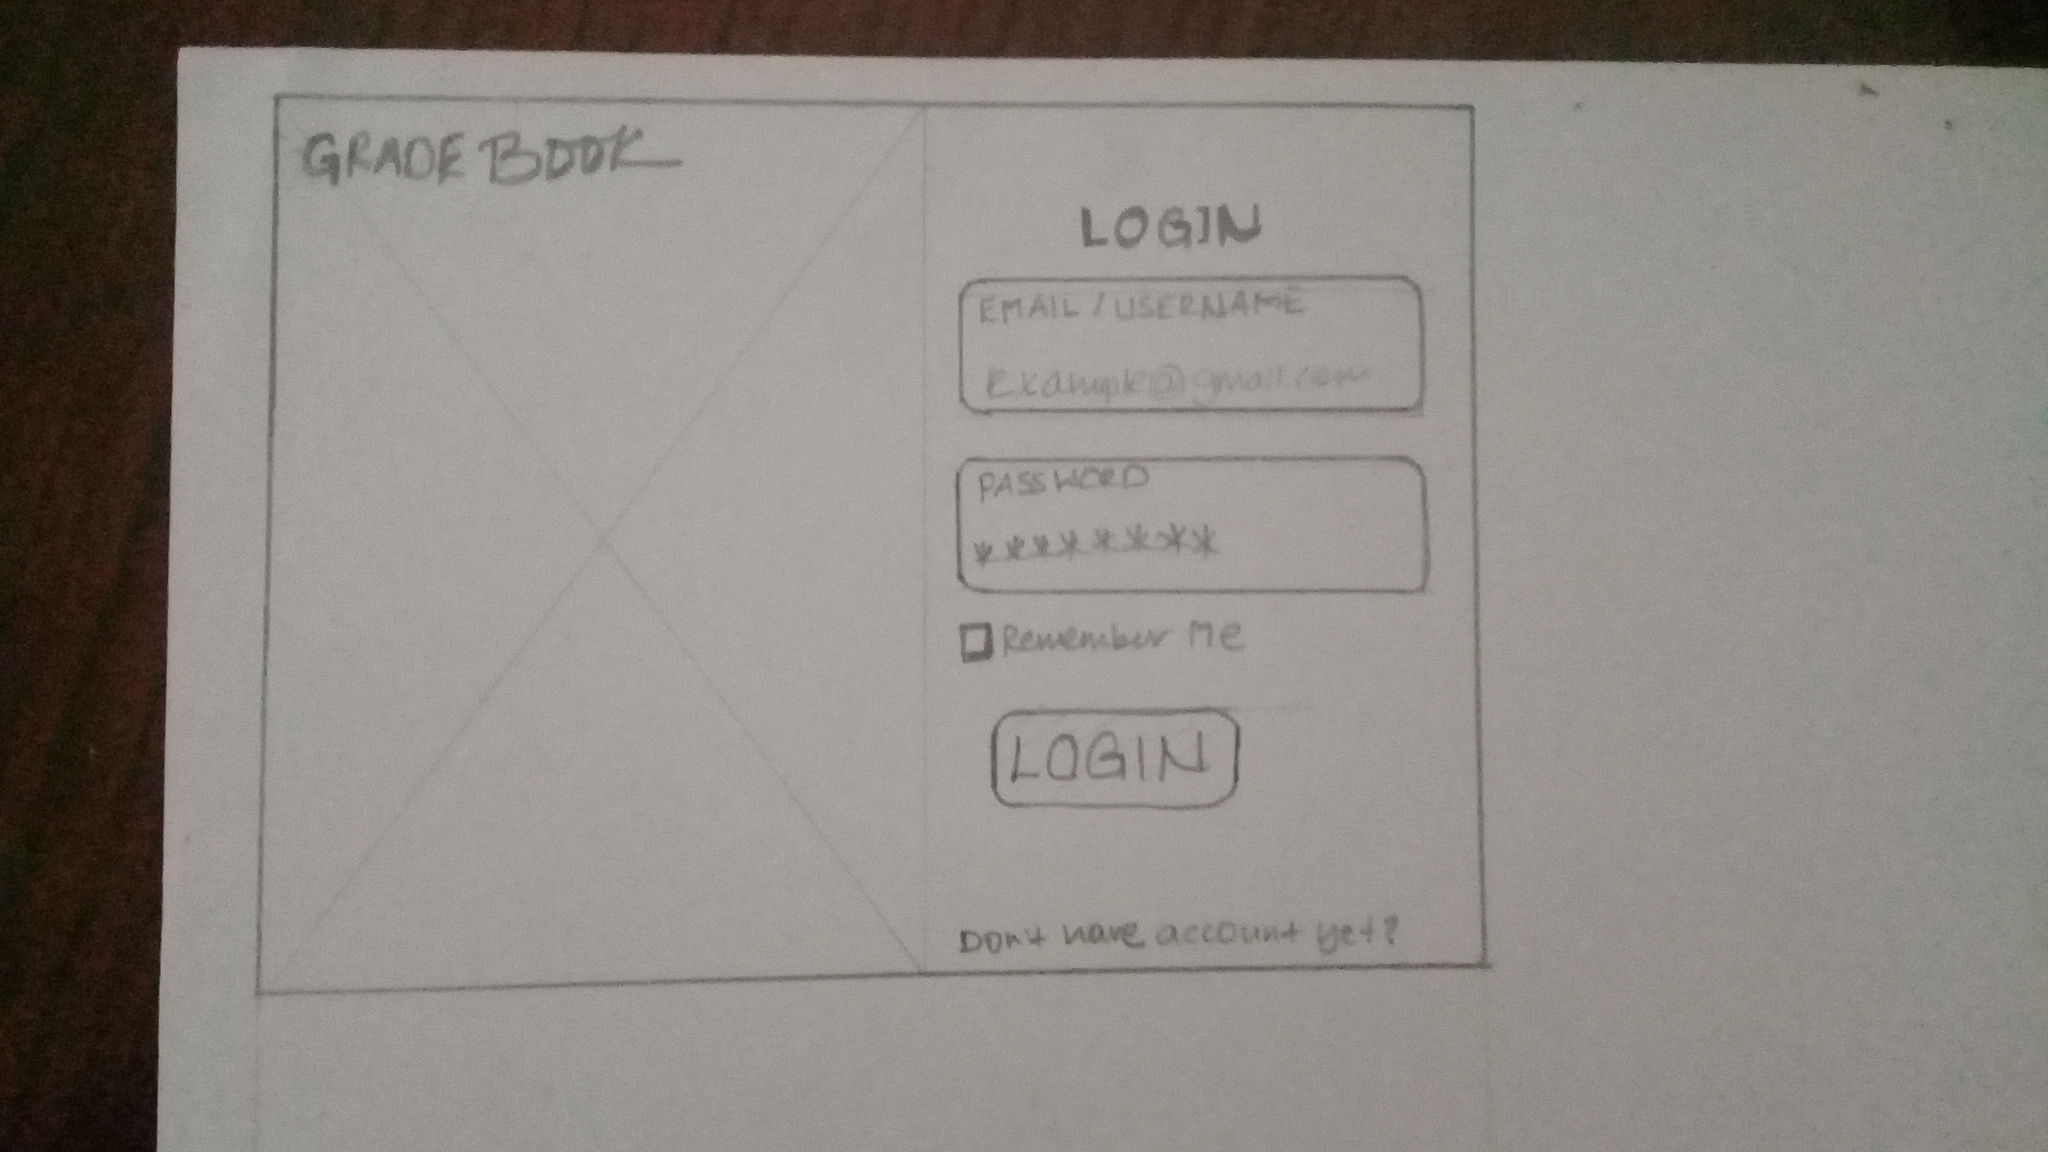 GRADE BOOK
LOGIN
EMAIL / USERNAME
example@gmail.com
PASSWORD
********
Remember Me
LOGIN
Don't have account yet?